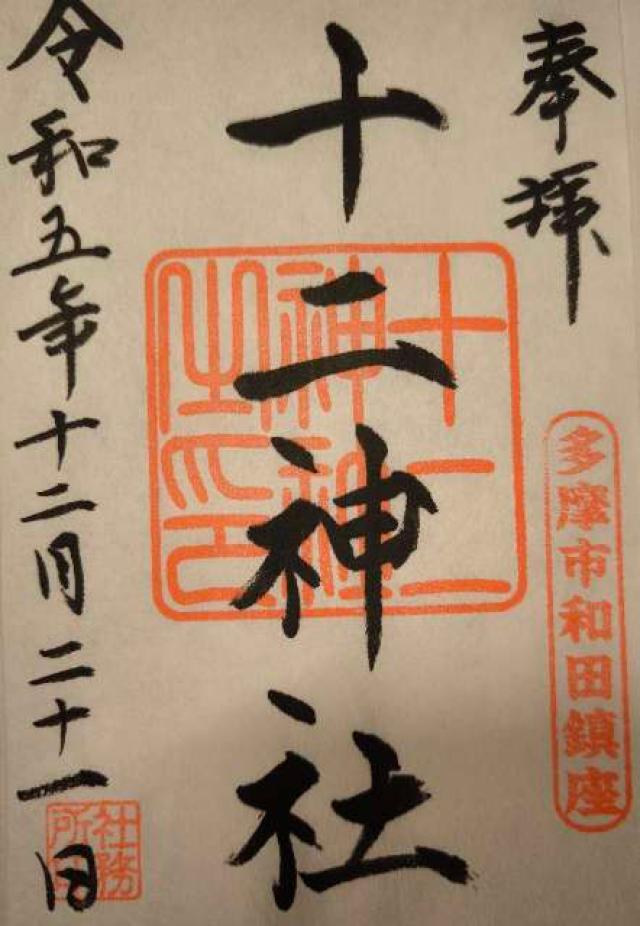 奉拝
多摩市和田鎮座
十二神社
十二神社之印
令和五年十二月二十一日
社務所印